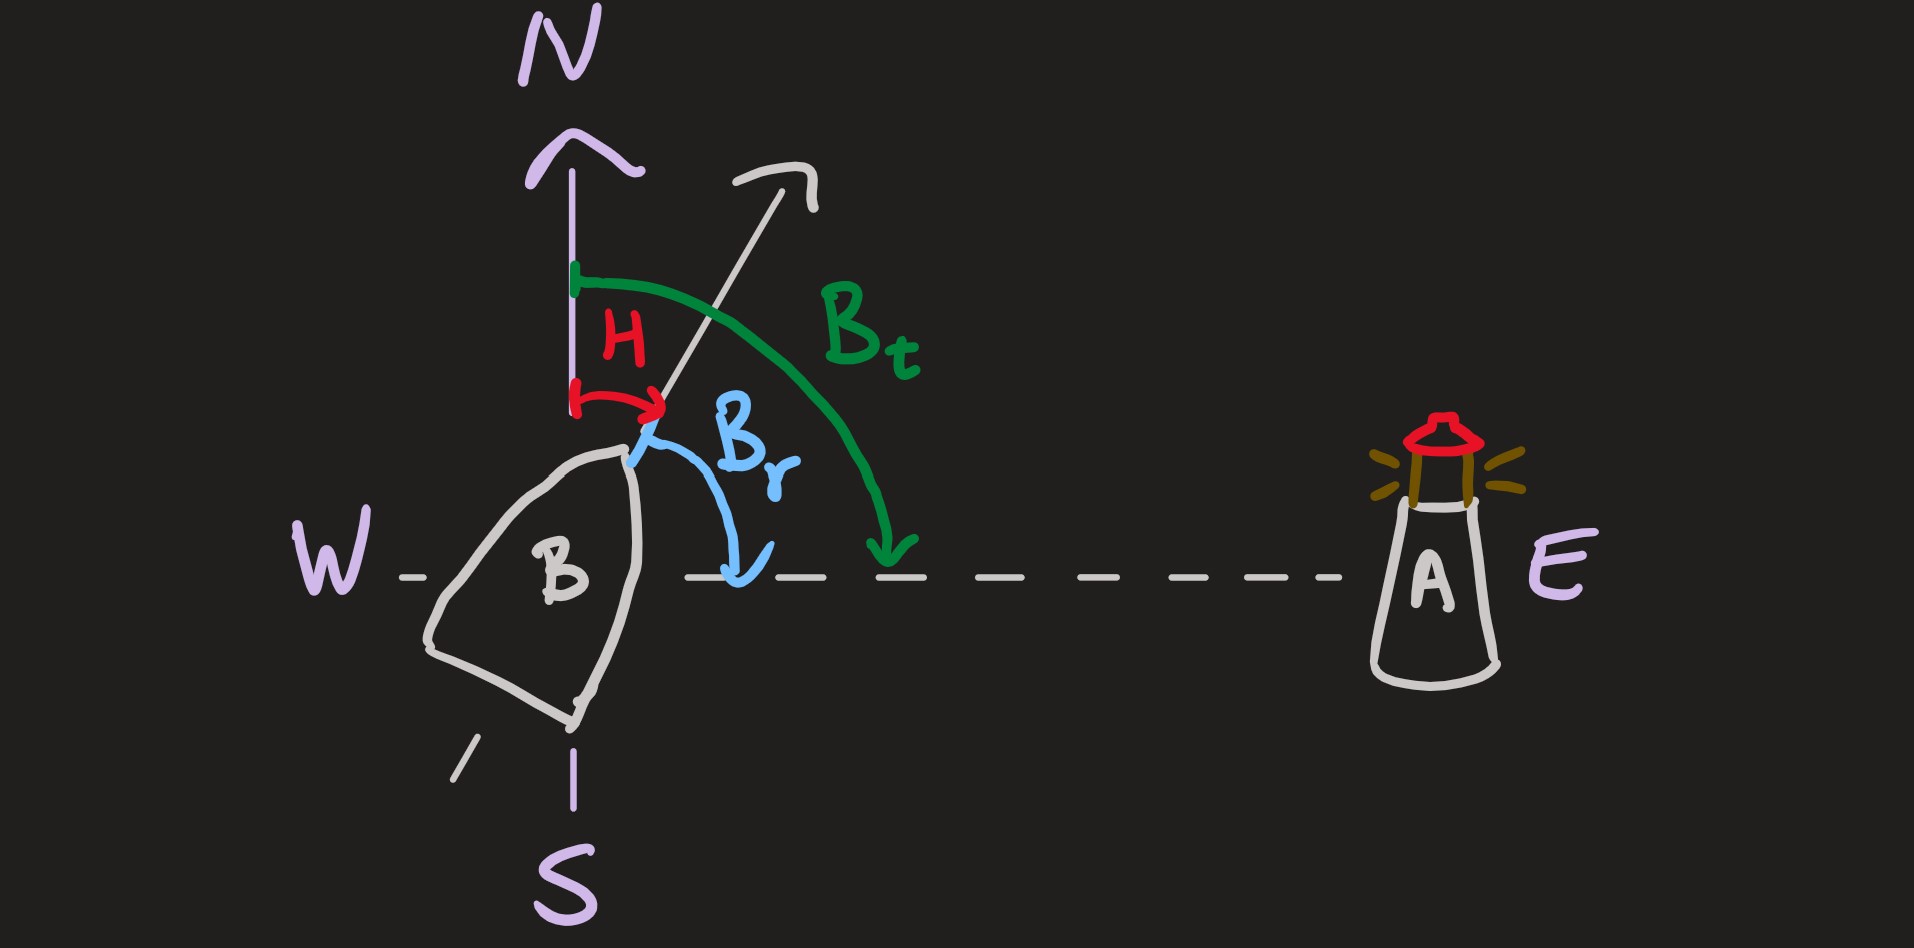 N
H
B_t
B_r
W
B
A
E
S